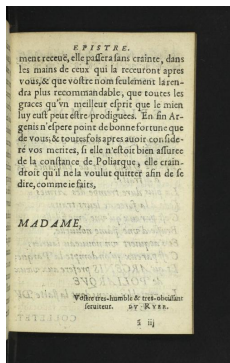 EPISTRE.
ment receuë, elle passera sans crainte, dans
les mains de ceux qui la receuront apres
vous, & que vostre nom seulement la ren-
dra plus recommandable, que toutes les
graces qu'vn meilleur esprit que le mien
luy eust peut estre prodiguées. En fin Ar-
genis n'espere point de bonne fortune que
de vous, & toutesfois apres auoir conside-
ré vos merites, si elle n'estoit bien asseurée
de la constance de Poliarque, elle crain-
droit qu'il ne la voulut quitter afin de se
dire, comme ie faits,
MADAME,
Vostre tres-humble & tres-obeissant
seruiteur. DV RYER.
ã iij